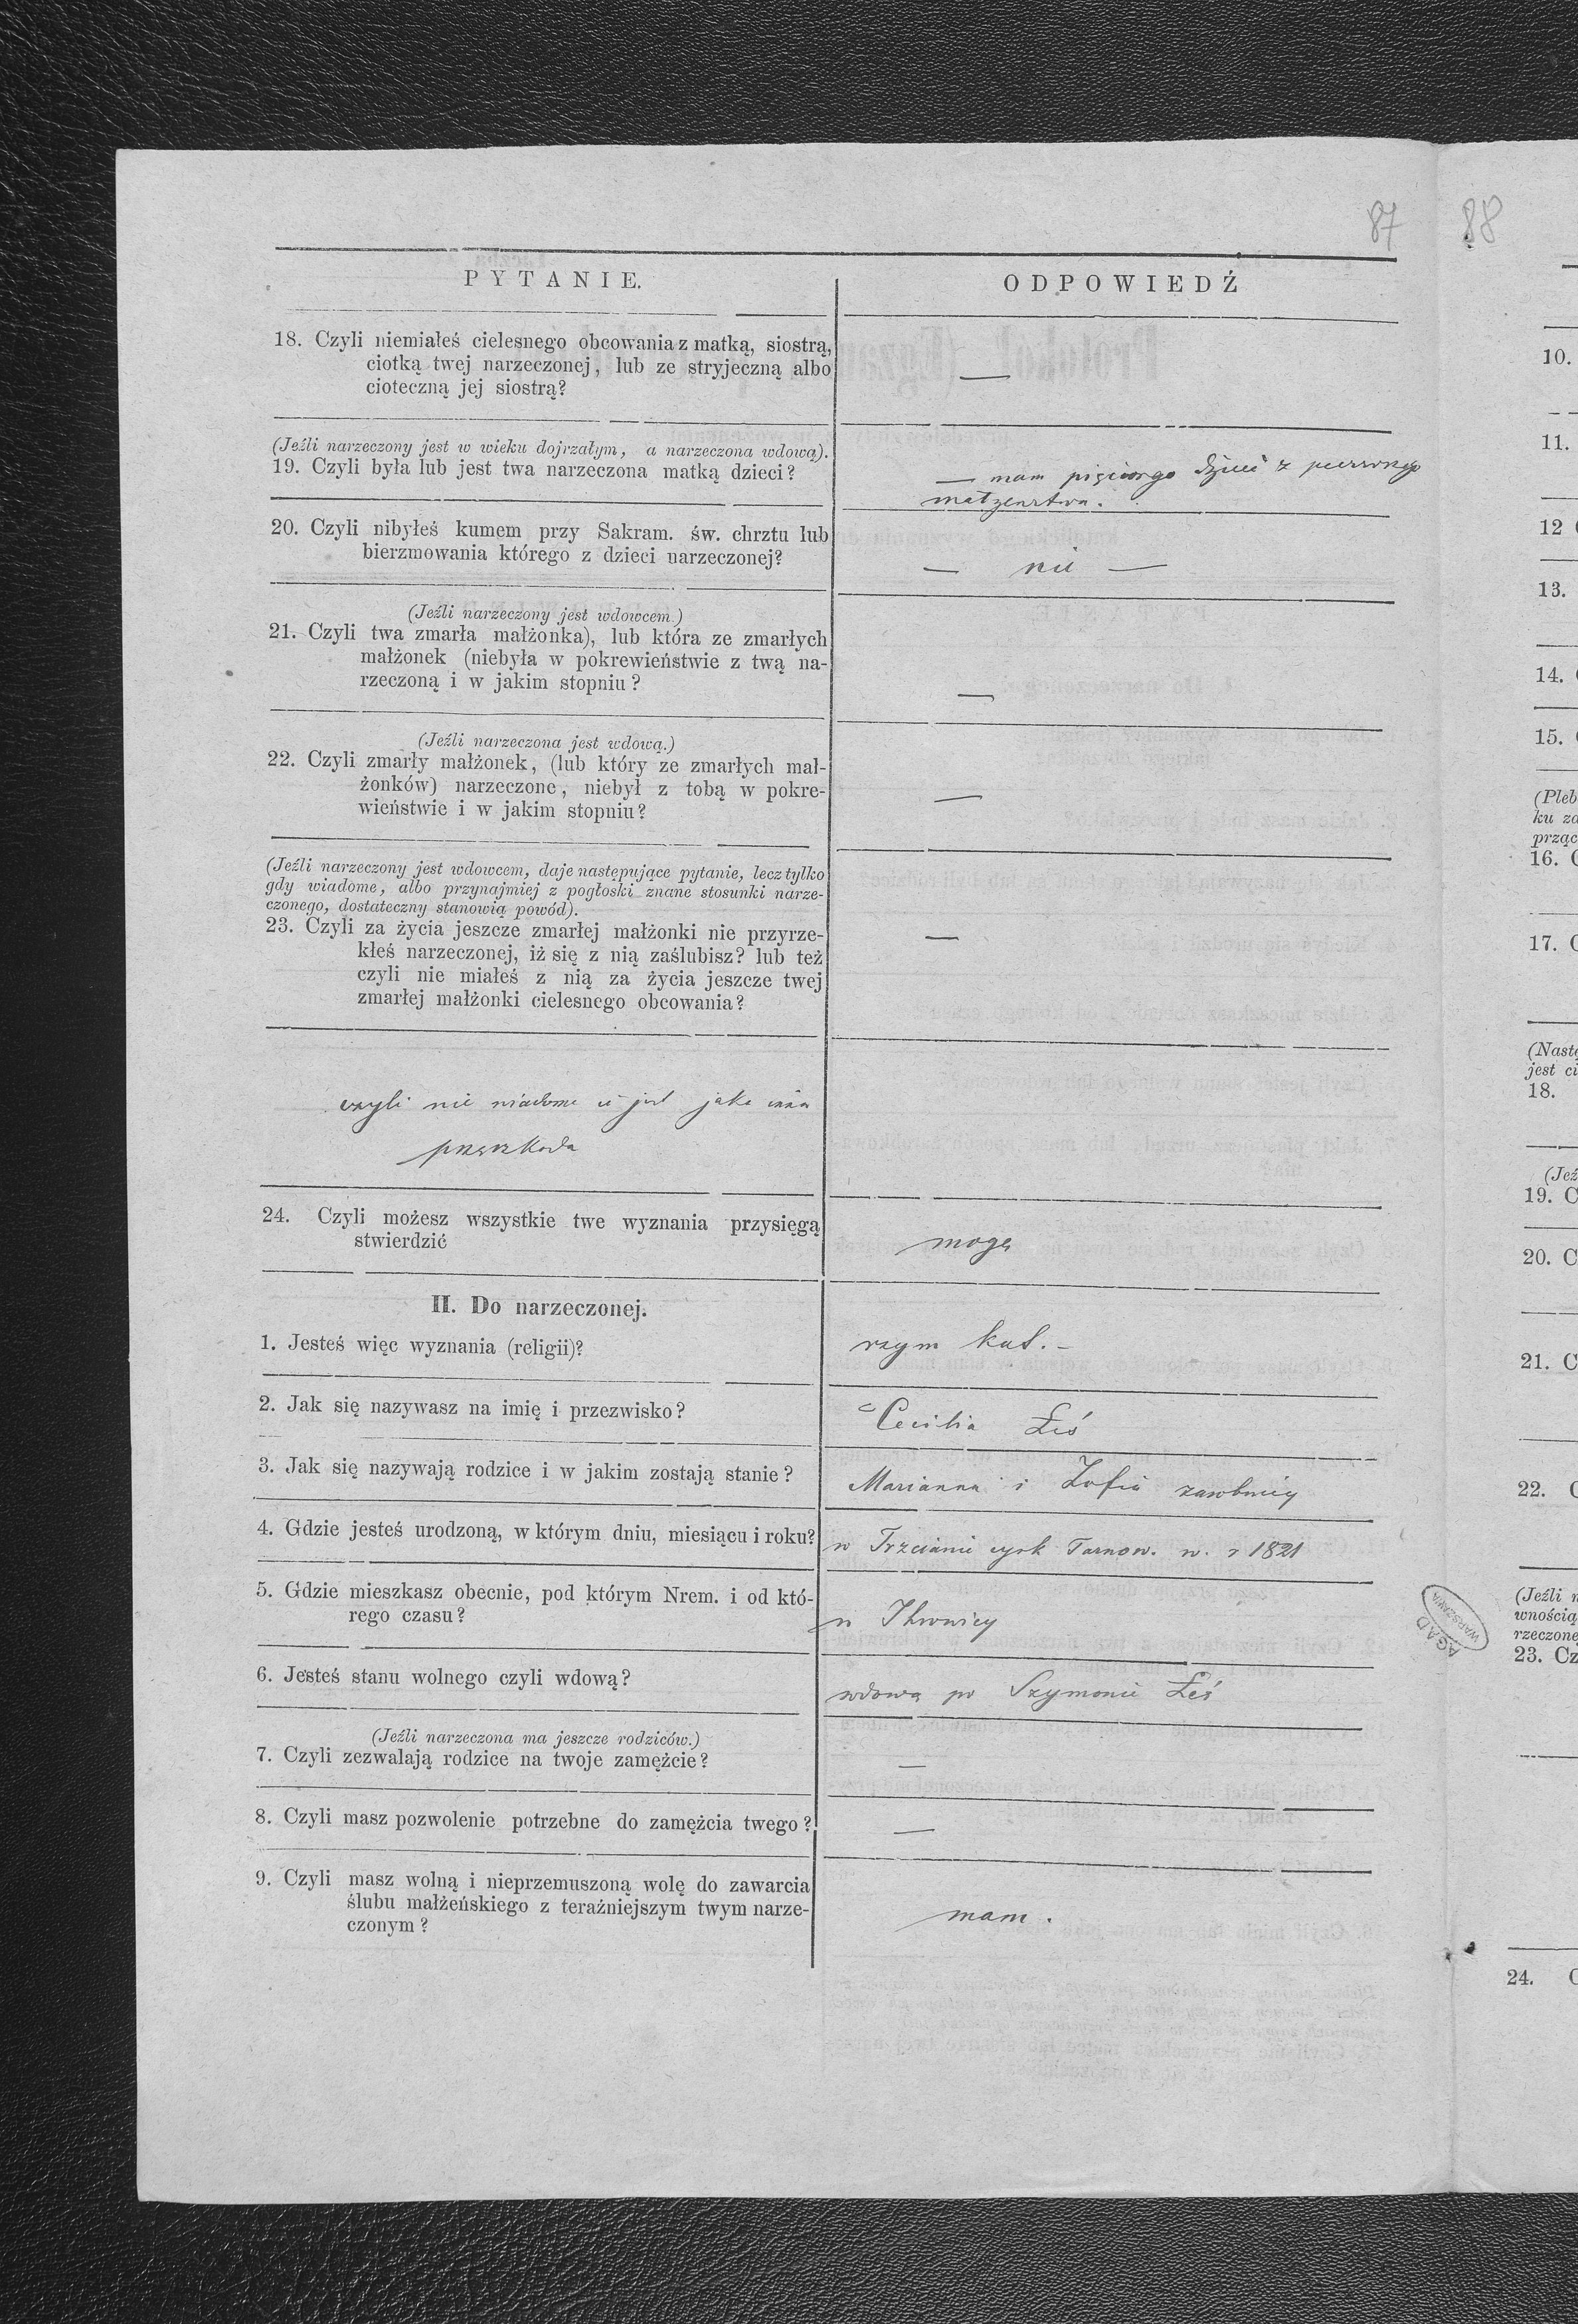 87 88
PYTANIE. ODPOWIEDŹ
18. Czyli niemiałeś cielesnego obcowania z matką, siostrą,
ciotką twej narzeczonej, lub ze stryjeczną albo
cioteczną jej siostrą? —
(Jeźli narzeczony jest w wieku dojrzałym, a narzeczona wdową).
19. Czyli była lub jest twa narzeczona matką dzieci?
— mam pięciorgo dzieci z pierwszego
małzenstwa.
20. Czyli nibyłeś kumem przy Sakram. św. chrztu lub
bierzmowania którego z dzieci narzeczonej?
— nie —
(Jeźli narzeczony jest wdowcem.)
21. Czyli twa zmarła małżonka), lub która ze zmarłych
małżonek (niebyła w pokrewieństwie z twą na-
rzeczoną i w jakim stopniu? —
(Jeźli narzeczona jest wdową.)
22. Czyli zmarły małżonek, (lub który ze zmarłych mał-
żonków) narzeczone, niebył z tobą w pokre-
wieństwie i w jakim stopniu? —
(Jeźli narzeczony jest wdowcem, daje następujące pytanie, lecz tylko
gdy wiadome, albo przynajmiej z pogłoski znane stosunki narze-
czonego, dostateczny stanowią powód).
23. Czyli za życia jeszcze zmarłej małżonki nie przyrze-
kłeś narzeczonej, iż się z nią zaślubisz? lub też
czyli nie miałeś z nią za życia jeszcze twej
zmarłej małżonki cielesnego obcowania? —
czyli nie wiadome iż jest jaka inna
przeszkoda
24. Czyli możesz wszystkie twe wyznania przysięgą
stwierdzić
mogę
II. Do narzeczonej.
1. Jesteś więc wyznania (religii)?
rzym kat. -
2. Jak się nazywasz na imię i przezwisko?
Cecilia Łeś
3. Jak się nazywają rodzice i w jakim zostają stanie?
Marianna i Zofia zarobnicy
4. Gdzie jesteś urodzoną, w którym dniu, miesiącu i roku?
w Trzcianie cyrk Tarnow. w. r 1821
5. Gdzie mieszkasz obecnie, pod którym Nrem. i od któ-
rego czasu?
w
6. Jesteś stanu wolnego czyli wdową?
wdowa po Szymonie Łeś
(Jeźli narzeczona ma jeszcze rodziców.)
7. Czyli zezwalają rodzice na twoje zamęźcie? —
8. Czyli masz pozwolenie potrzebne do zamężcia twego? —
9. Czyli masz wolną i nieprzemuszoną wolę do zawarcia
ślubu małżeńskiego z teraźniejszym twym narze-
czonym?
mam.
10.
11.
12
13.
14.
15.
(Pleb
ku za
prząc
16. C
17. C
(Nastę
jest ci
18.
(Jeź
19. C
20. C
21. C
22. C
(Jeźli n
wnością
rzeczone
23. Cz
24. C
AGAD
WARSZAWA